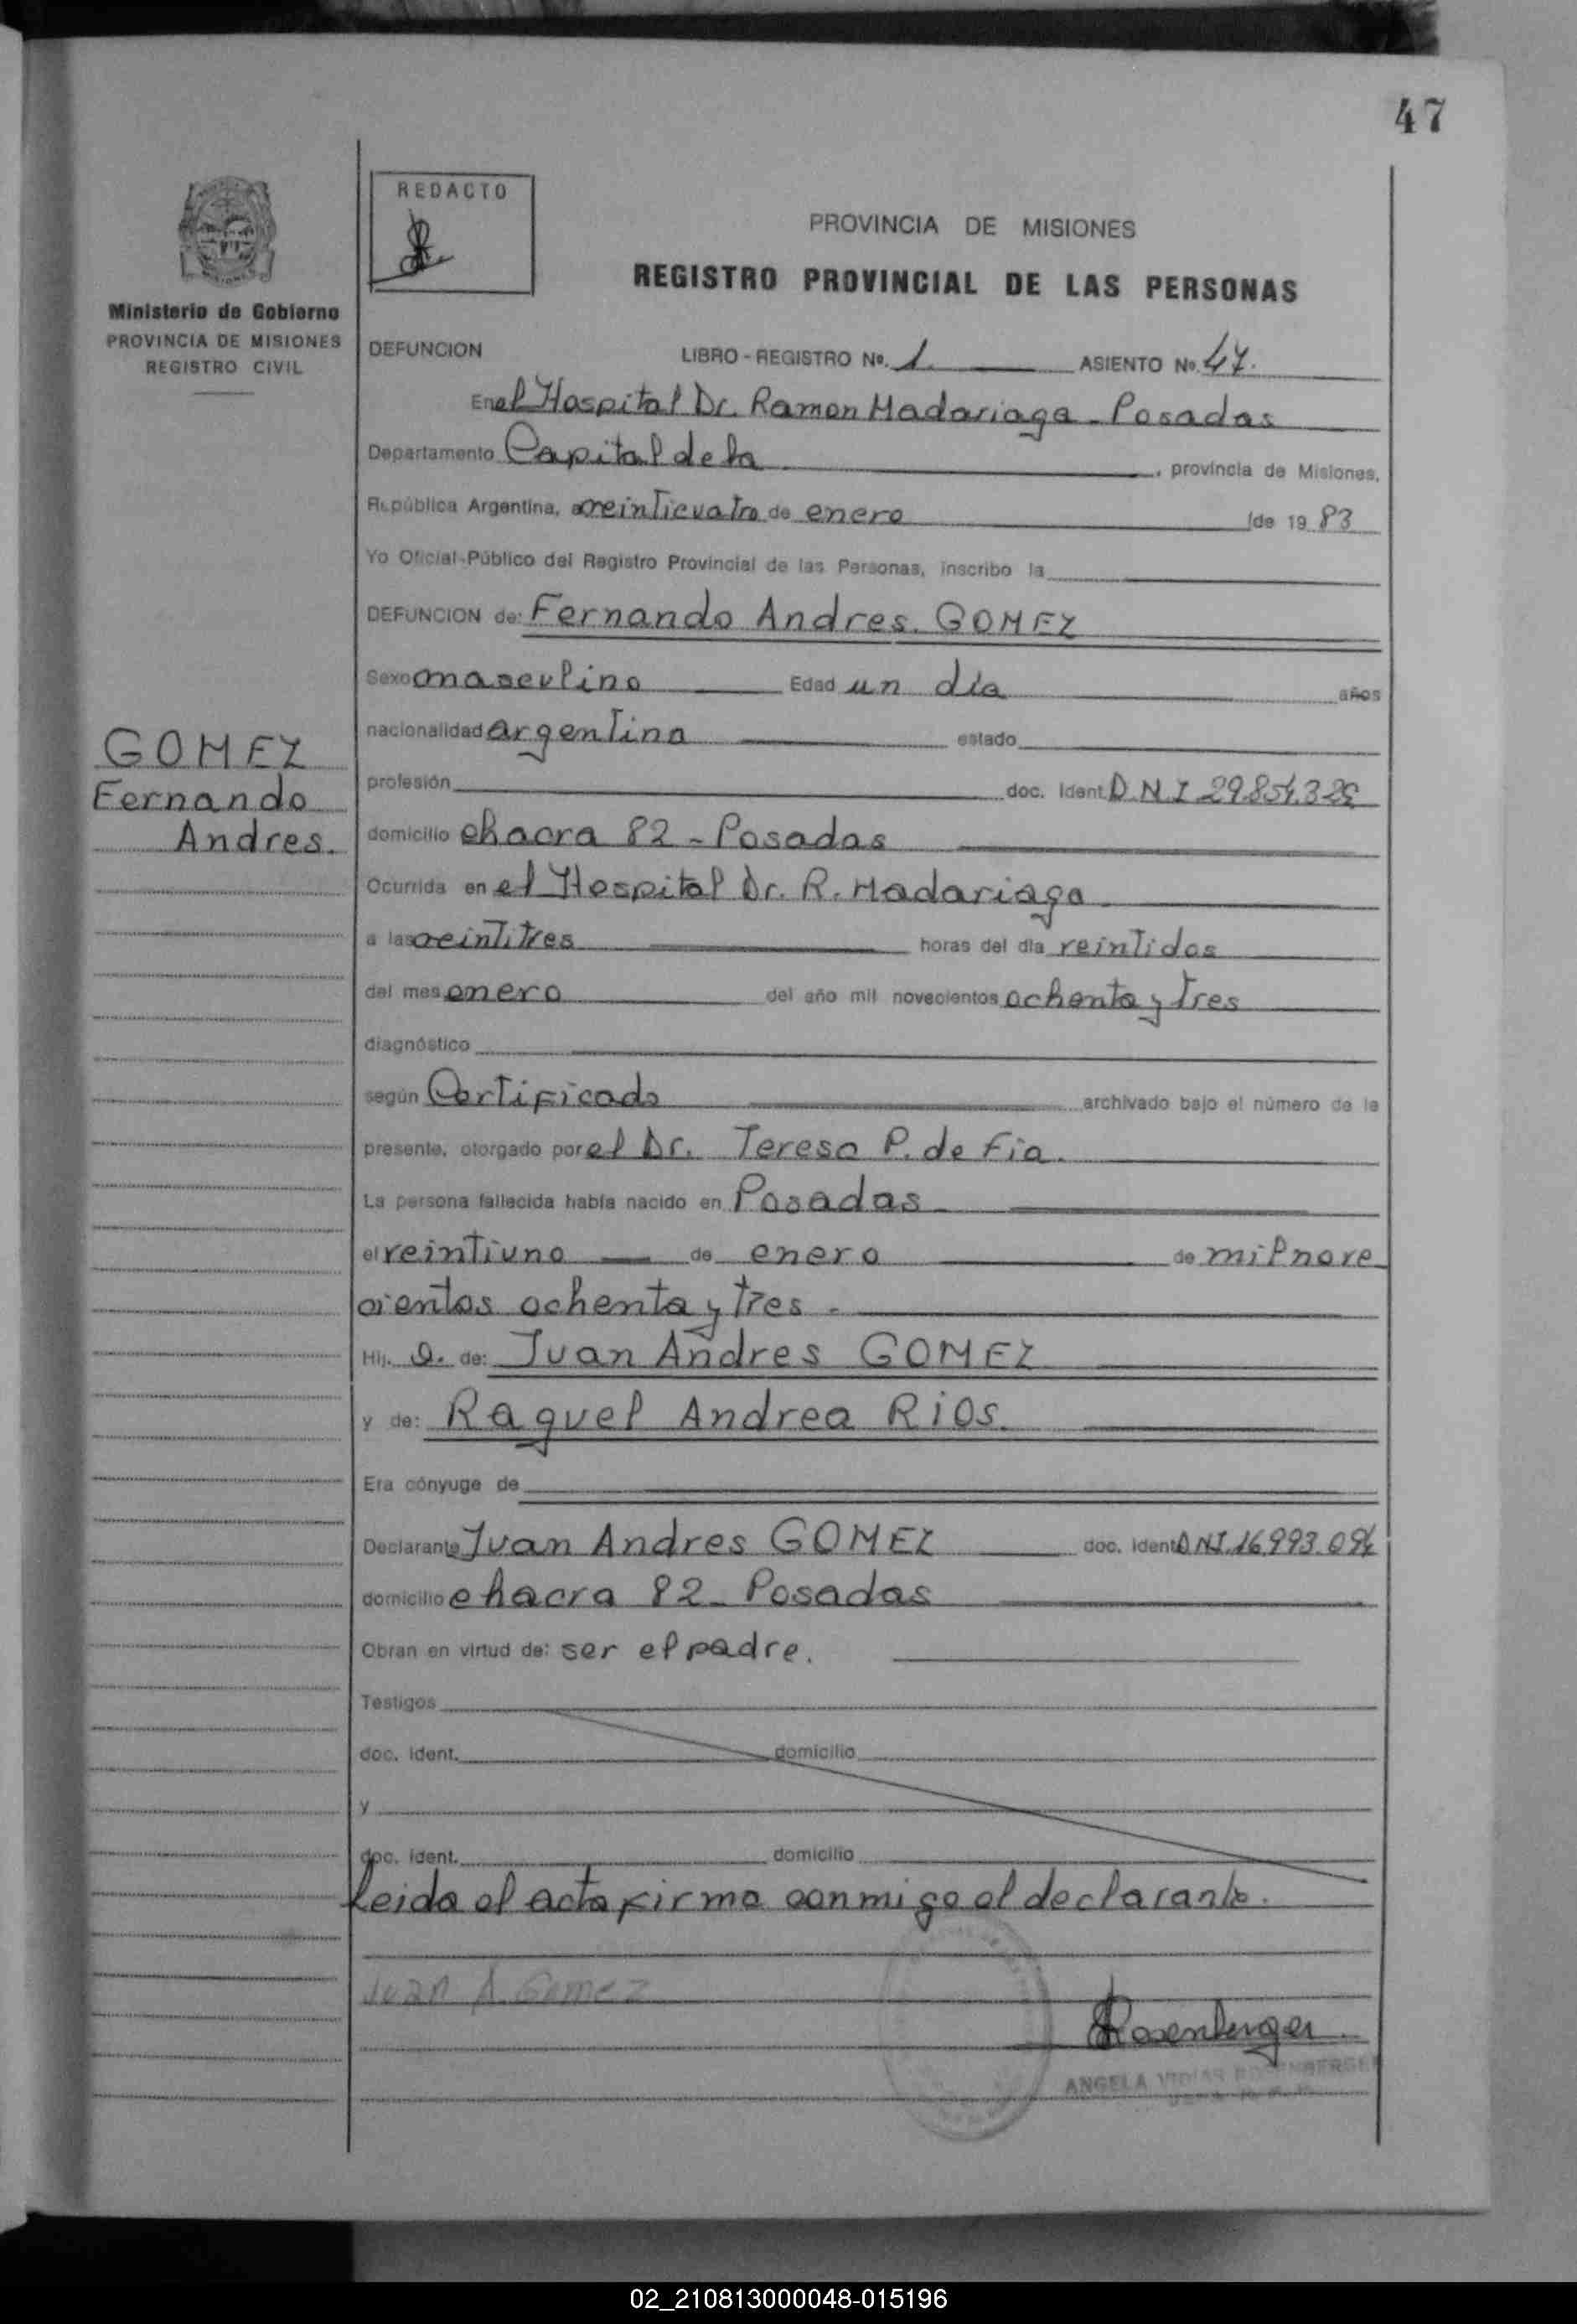 47
REDACTO
PROVINCIA DE MISIONES
REGISTRO PROVINCIAL DE LAS PERSONAS
Ministerio de Gobierno
PROVINCIA DE MISIONES
REGISTRO CIVIL
DEFUNCION LIBRO - REGISTRO Nº. 1. ASIENTO Nº 47.
En el Hospital Dr. Ramon Madariaga - Posadas
Departamento Capital de la , provincia de Misiones,
República Argentina, a veinticuatro de enero de 19 83
Yo Oficial Público del Registro Provincial de las Personas, inscribo la
DEFUNCION de: Fernando Andres. GOMEZ
Sexo masculino Edad un día años
nacionalidad argentina estado
GOMEZ
Fernando
Andres.
profesión doc. ident. D.N.I 29.854.325
domicilio chacra 82 - Posadas
Ocurrida en el Hospital Dr. R. Madariaga.
a las veintitres horas del día veintidos
del mes enero del año mil novecientos ochenta y tres
diagnóstico
según Certificado archivado bajo el número de la
presente, otorgado por el Dr. Teresa P. de Fia.
La persona fallecida había nacido en Posadas
el veintiuno de enero de mil nove
cientos ochenta y tres -
Hij. o. de: Juan Andres GOMEZ
y de: Raquel Andrea RIOS.
Era cónyuge de
Declarante Juan Andres GOMEZ doc. ident. DNI. 16.993.094
domicilio chacra 82 - Posadas
Obran en virtud de: ser el padre.
Testigos
doc. ident. domicilio
y
doc. ident. domicilio
Leida el acta firma conmigo el declarante.
Juan A. Gomez
Rosenberger
ANGELA ROSENBERGER
02_210813000048-015196